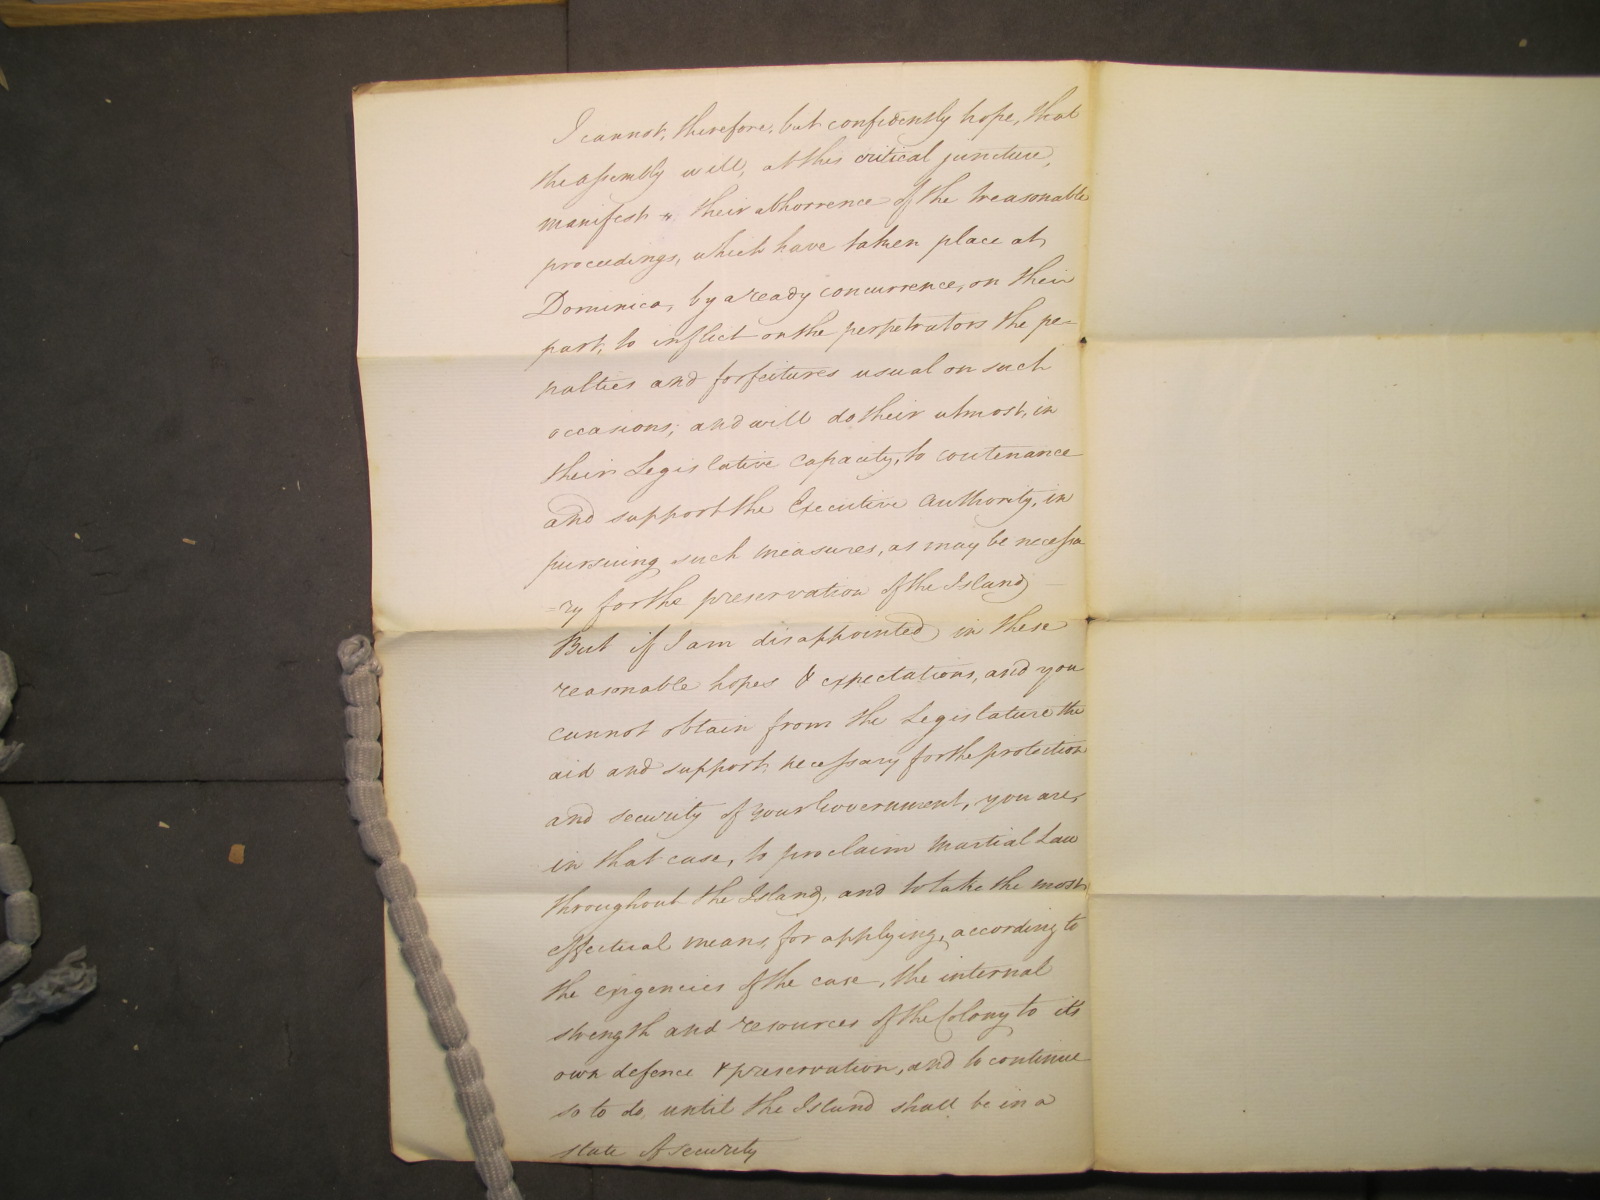 I cannot, therefore, but confidently hope, that
the assembly will, at this critical juncture,
manifest their abhorrence of the treasonable
proceedings, which have taken place at
Dominica, by a ready concurrence, on their
part, to inflict on the perpetrators the pe-
nalties and forfeitures usual on such
occasions; and will do their utmost, in
their Legislative Capacity, to coutenance
and support the Executive Authority, in
pursuing such measures, as may be necessa
=ry for the preservation of the Island
But if I am disappointed in these
reasonable hopes & expectations, and you
cannot obtain from the Legislature the
aid and support necessary for the protection
and security of your Government, you are,
in that case, to proclaim Martial Law
throughout the Island, and to take the most
effectual means, for applying, according to
the exigencies of the case, the internal
strength and resources of the Colony to it's
own defence & preservation, and to continue
so to do, until the Island shall be in a
state of security